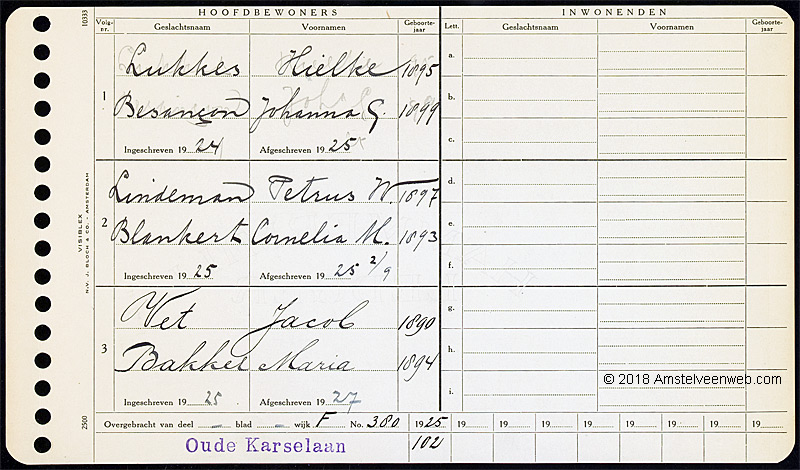 HOOFDBEWONERS INWONENDEN
Volg-nr. Geslachtsnaam Voornamen Geboorte-jaar Lett. Geslachtsnaam Voornamen Geboorte-jaar
10333
1
Lukkes Hielke 1895
Besançon Johanna G. 1899
Ingeschreven 19 24 Afgeschreven 19 25
2
Lindeman Petrus W. 1897
Blankert Cornelia M. 1893
Ingeschreven 19 25 Afgeschreven 19 25 2/9
3
Vet Jacob 1890
Bakker Maria 1894
Ingeschreven 19 25 Afgeschreven 19 27
a.
b.
c.
d.
e.
f.
g.
h.
i.
© 2018 Amstelveenweb.com
VISIBLEX
N.V. J. BLOCH & CO. - AMSTERDAM
2500
Overgebracht van deel — blad — wijk F No. 380 19 25 19 19 19 19 19 19 19 19
Oude Karselaan 102